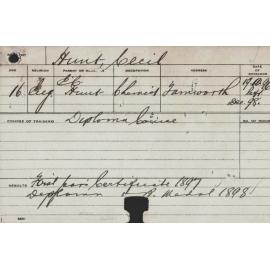 Hunt, Cecil
AGE RELIGION PARENT OR GUAR. OCCUPATION ADDRESS DATE OF ENTRANCE
16 C of E E.C. Hunt Chemist Tamworth
Sept
Dec. 98.
COURSE OF TRAINING Diploma Course
RESULTS First pass Certificate 1897
Diploma & B. Medal 1898